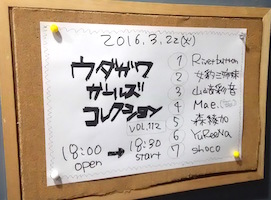 2016.3.22(火)
ウダガワ
ガールズ
コレクション
VOL.112
18:00 → 18:30
open start
1 Riverbutton
2 女豹三姉妹
3 山崎彩音
4 Mae.
5 森綾加
6 YuReeNa
7 shoco